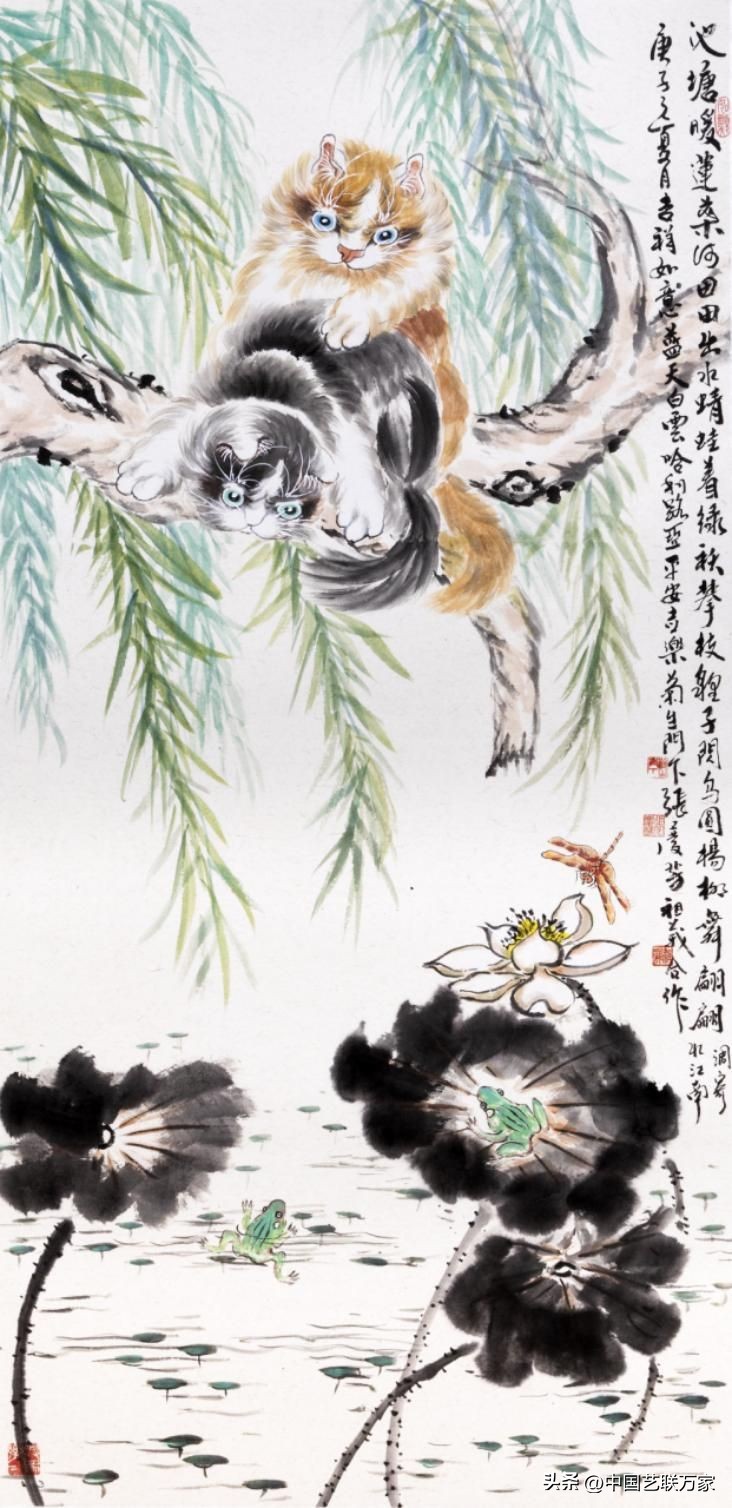 池塘暖蓮葉何田田出水蜻蛙着绿袄攀枝貍子閃烏圓楊柳舞翩翩
調寄
忆江南
庚子之夏月吉祥如意藍天白雲哈利路亞平安喜樂菊生門下張爱芳祖義合作
头条 @中国艺联万家